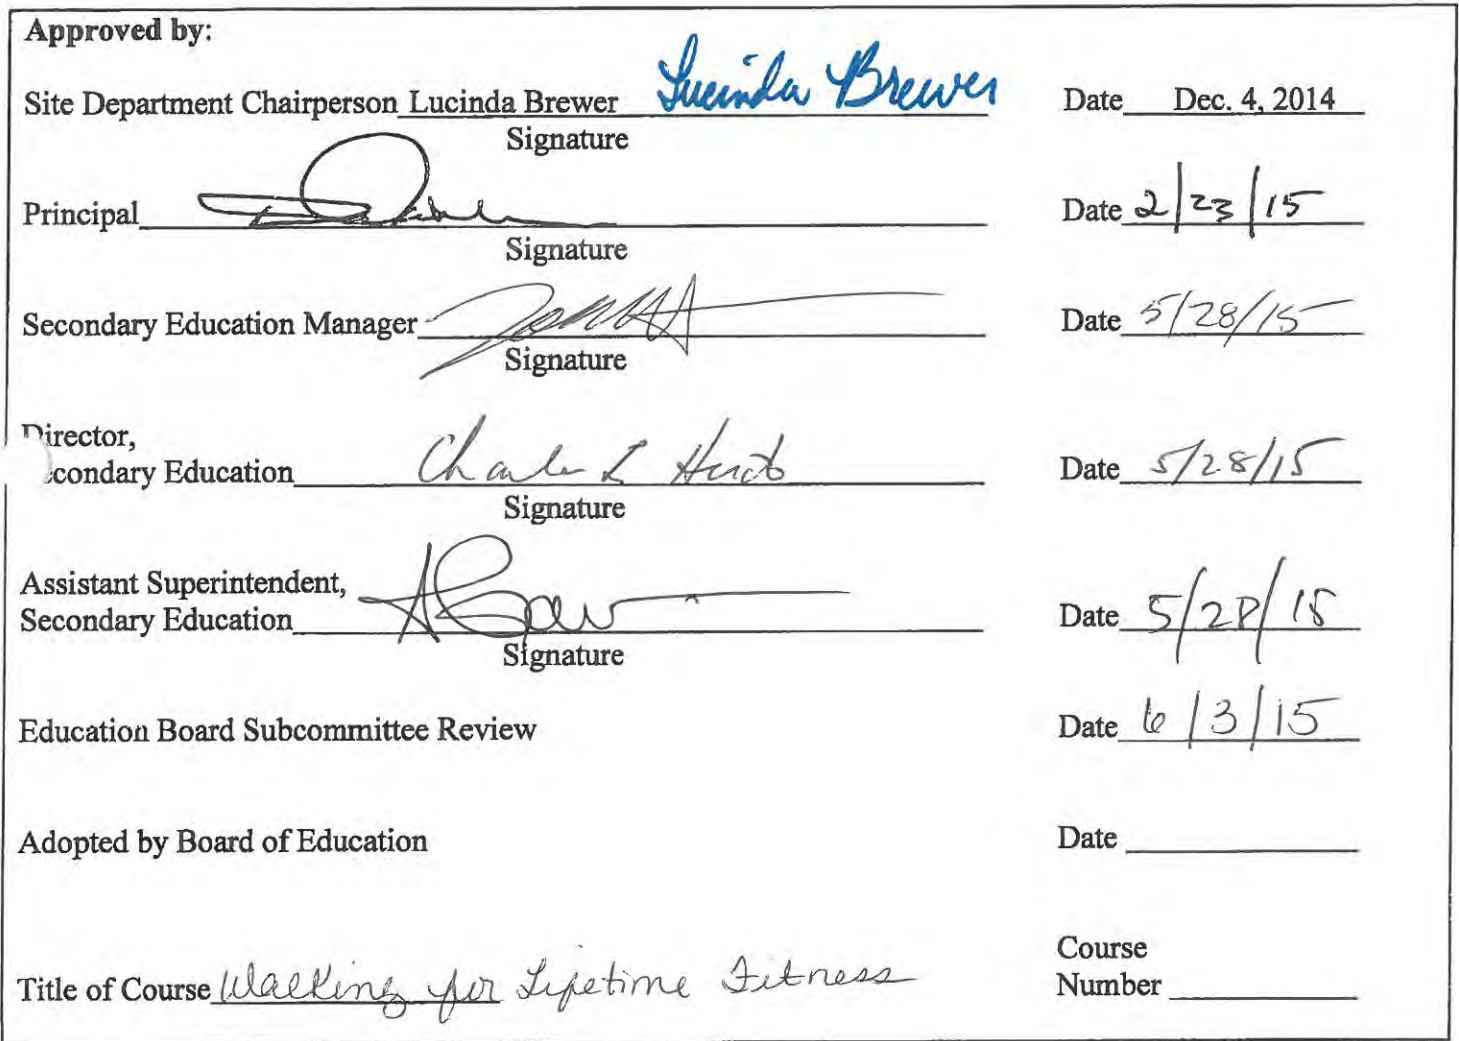 Approved by:
Site Department Chairperson Lucinda Brewer Lucinda Brewer Date Dec. 4, 2014
Signature
Principal Date 2/23/15
Signature
Secondary Education Manager Date 5/28/15
Signature
Director,
condary Education Charles L Date 5/28/15
Signature
Assistant Superintendent,
Secondary Education Date 5/28/15
Signature
Education Board Subcommittee Review Date 6/3/15
Adopted by Board of Education Date
Course
Title of Course Walking for Lifetime Fitness Number